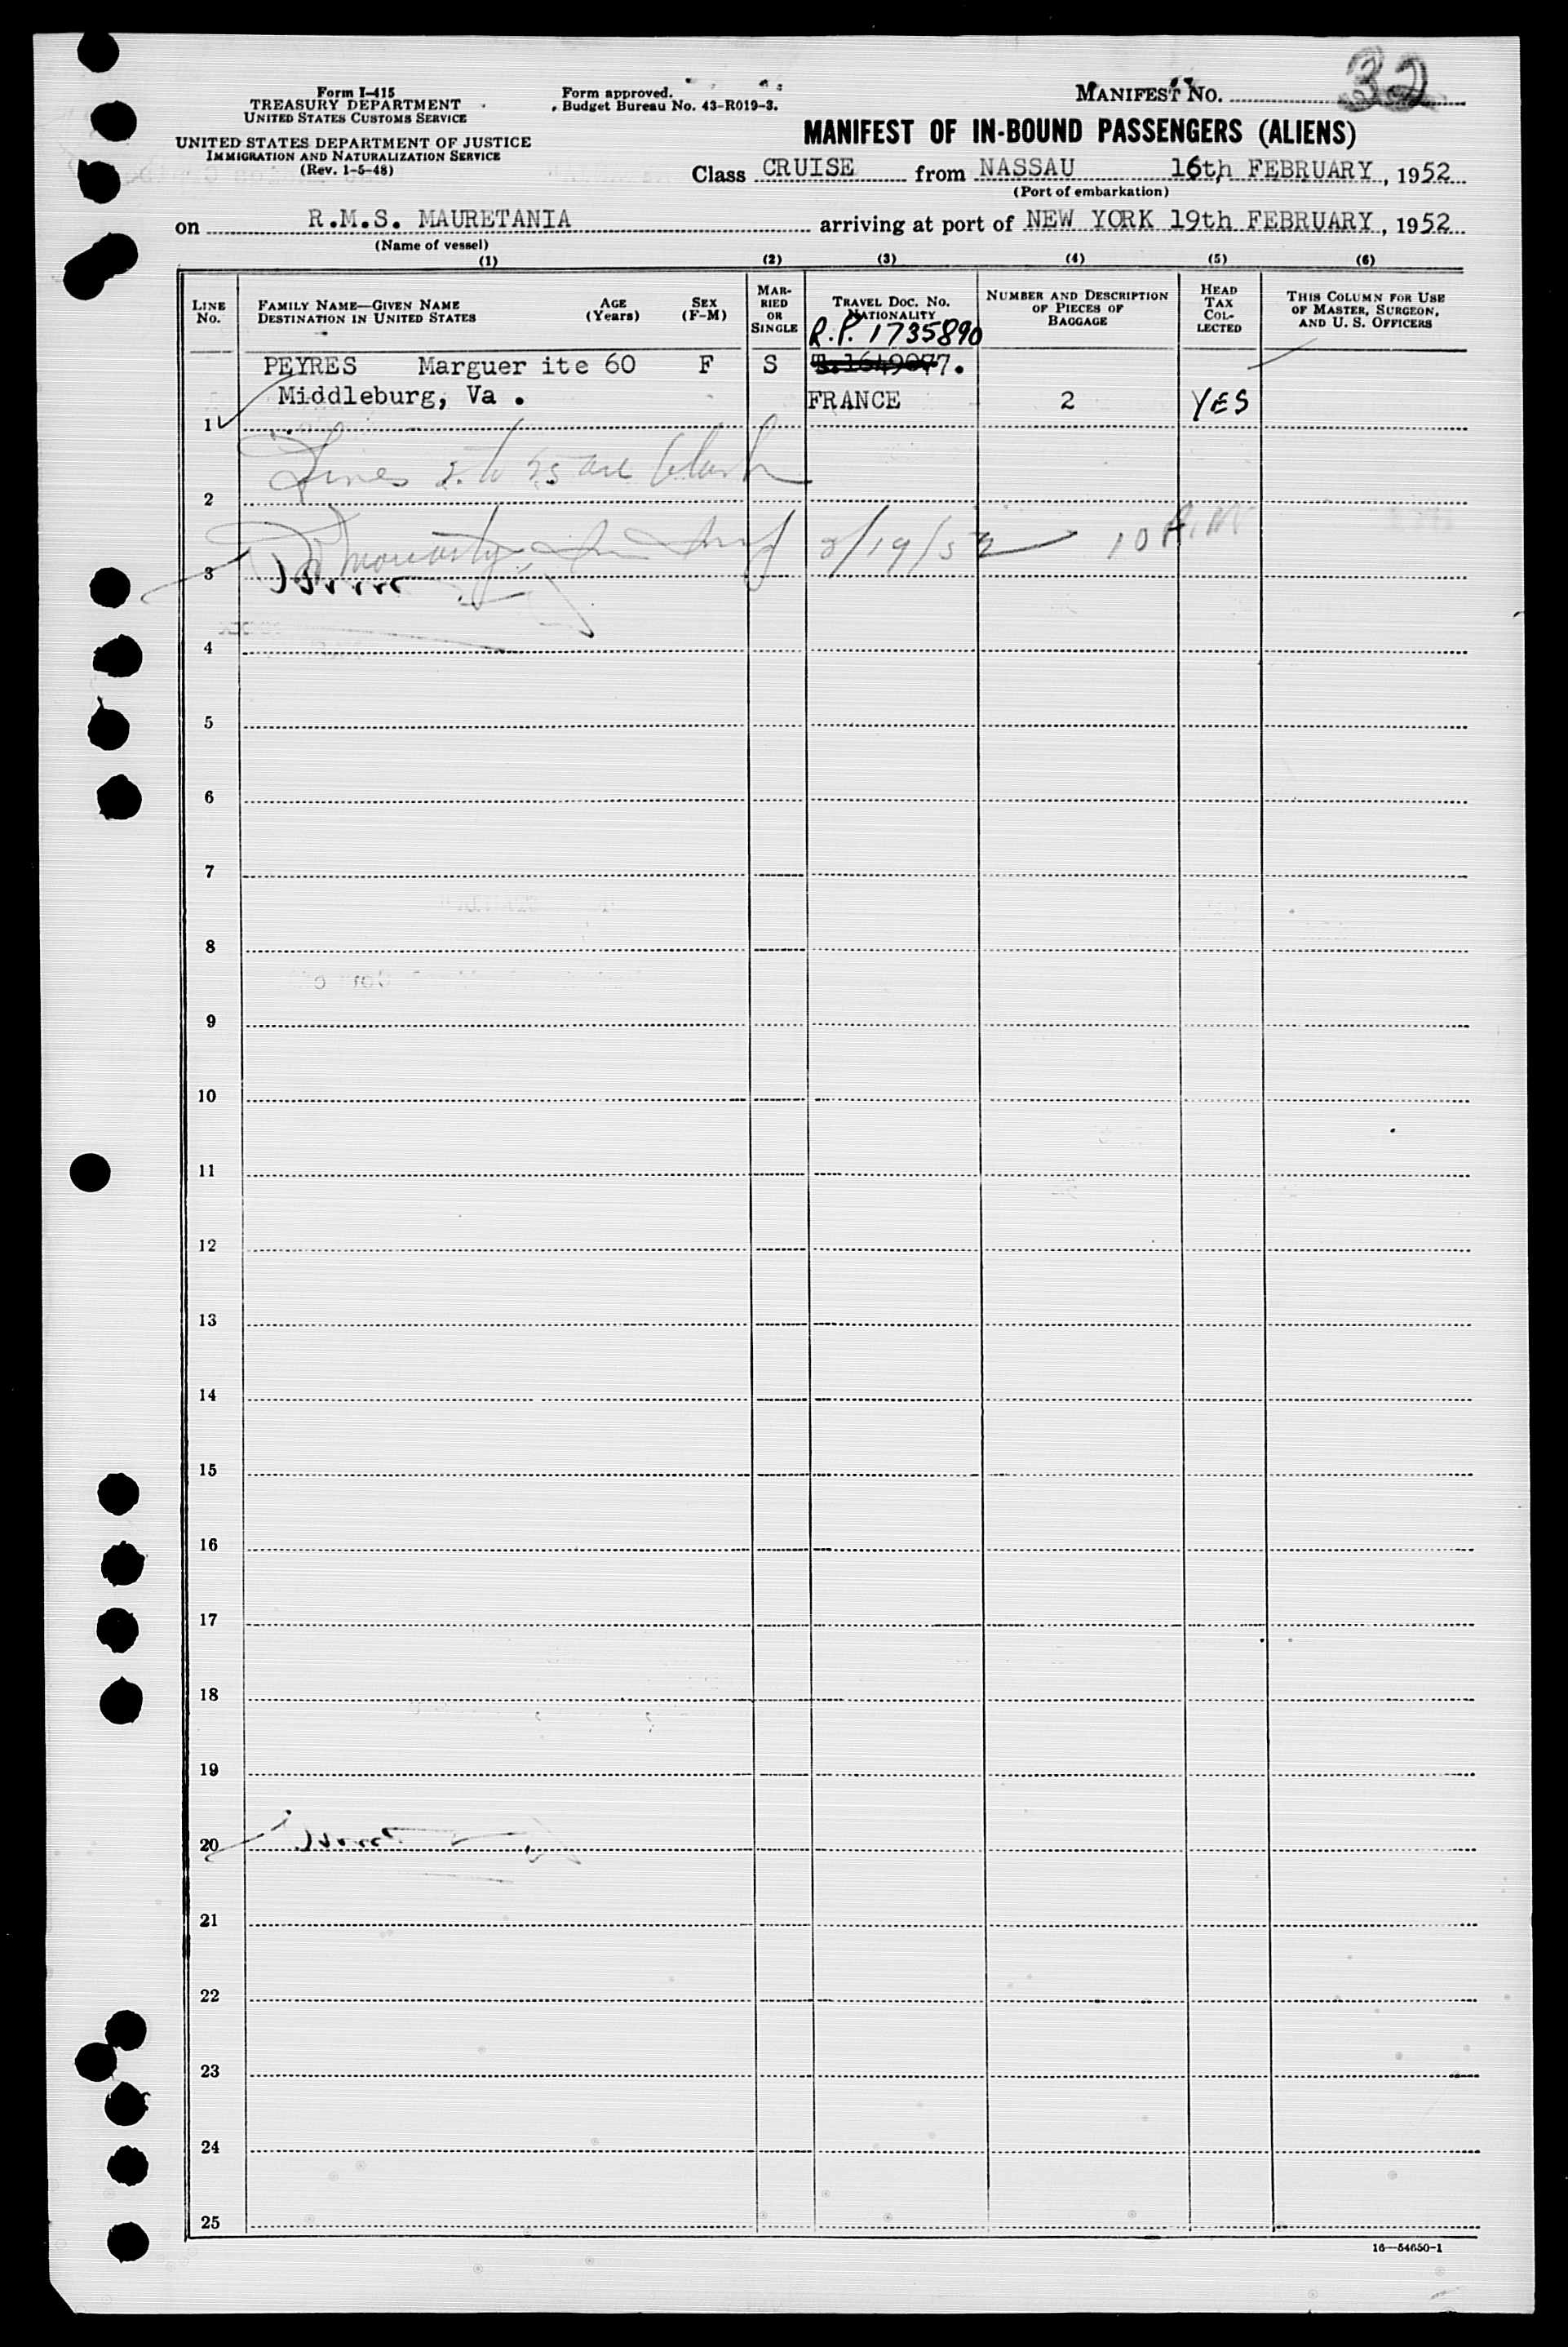 32
Form I-415
TREASURY DEPARTMENT
UNITED STATES CUSTOMS SERVICE
UNITED STATES DEPARTMENT OF JUSTICE
IMMIGRATION AND NATURALIZATION SERVICE
(Rev. 1-5-48)
Form approved.
Budget Bureau No. 43-R019-3.
MANIFEST NO.
MANIFEST OF IN-BOUND PASSENGERS (ALIENS)
Class CRUISE from NASSAU 16th FEBRUARY, 1952
(Port of embarkation)
on R.M.S. MAURETANIA arriving at port of NEW YORK 19th FEBRUARY, 1952
(Name of vessel)
(1) (2) (3) (4) (5) (6)
LINE NO.
FAMILY NAME—GIVEN NAME
DESTINATION IN UNITED STATES
AGE (Years)
SEX (F-M)
MARRIED OR SINGLE
TRAVEL DOC. NO.
NATIONALITY
NUMBER AND DESCRIPTION OF PIECES OF BAGGAGE
HEAD TAX COLLECTED
THIS COLUMN FOR USE OF MASTER, SURGEON, AND U. S. OFFICERS
R.P. 1735890
PEYRES Marguer ite 60 F S
Middleburg, Va . FRANCE 2 YES
1
Lines 2 to 25 are blank
2
Moriarty 2/19/52 10 A.M
3
4
5
6
7
8
9
10
11
12
13
14
15
16
17
18
19
20
21
22
23
24
25
16—54650-1